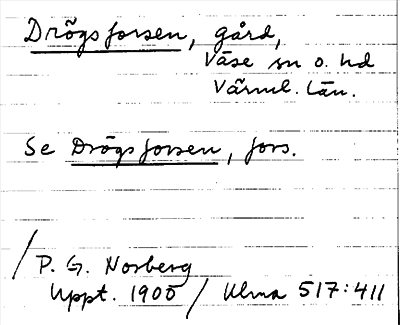 Drögsforsen, gård,
Väse sn o. hd
Värml. län.
Se Drögsforsen, fors.
/ P. G. Norberg
Uppt. 1905 / Ulma 517:411